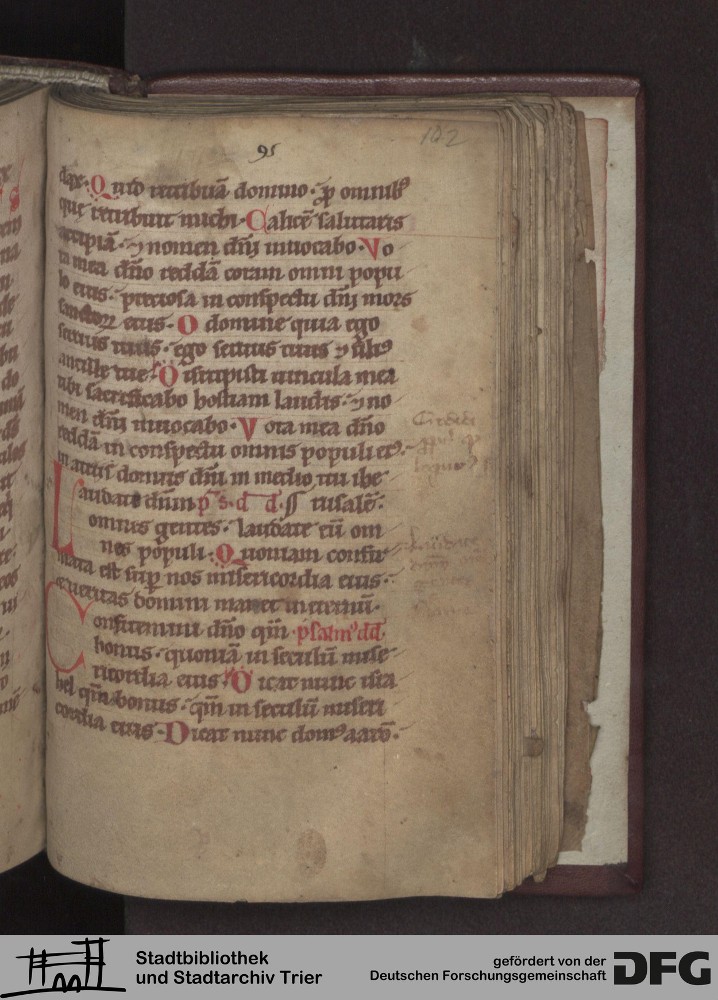 95
102
dax. Quid retribuā domino. p̱ omnibꝰ
que retribuit michi. Calicē salutaris
accipiā. ⁊ nomen dn̄i inuocabo. Vo
ta mea dn̄o reddā coram omni popu
lo eius. preciosa in conspectu dn̄i mors
sanctoꝝ eius. O domine quia ego
seruus tuus. ego seruus tuus ⁊ filiꝰ
ancille tue. Disrupisti uincula mea
tibi sacrificabo hostiam laudis. ⁊ no
men dn̄i inuocabo. Vota mea dn̄o
reddā in conspectu omnis populi eiꝰ.
in atriis domus dn̄i in medio tui ihe
Laudate dn̄m p̄s. d̄d. rusalē.
omnes gentes. laudate eū om
nes populi. Quoniam confir
mata est sup̱ nos misericordia eius.
⁊ ueritas domini manet in eternū.
Confitemini dn̄o qm̄ psalmꝰ dd̄.
bonus. quoniā in seculū mise
ricordia eius. Dicat nunc isra
hel qm̄ bonus. qm̄ in seculū miseri
cordia eius. Dicat nunc domꝰ aarō.
Credidi
Laudate
gentes
Stadtbibliothek
und Stadtarchiv Trier
gefördert von der
Deutschen Forschungsgemeinschaft
DFG